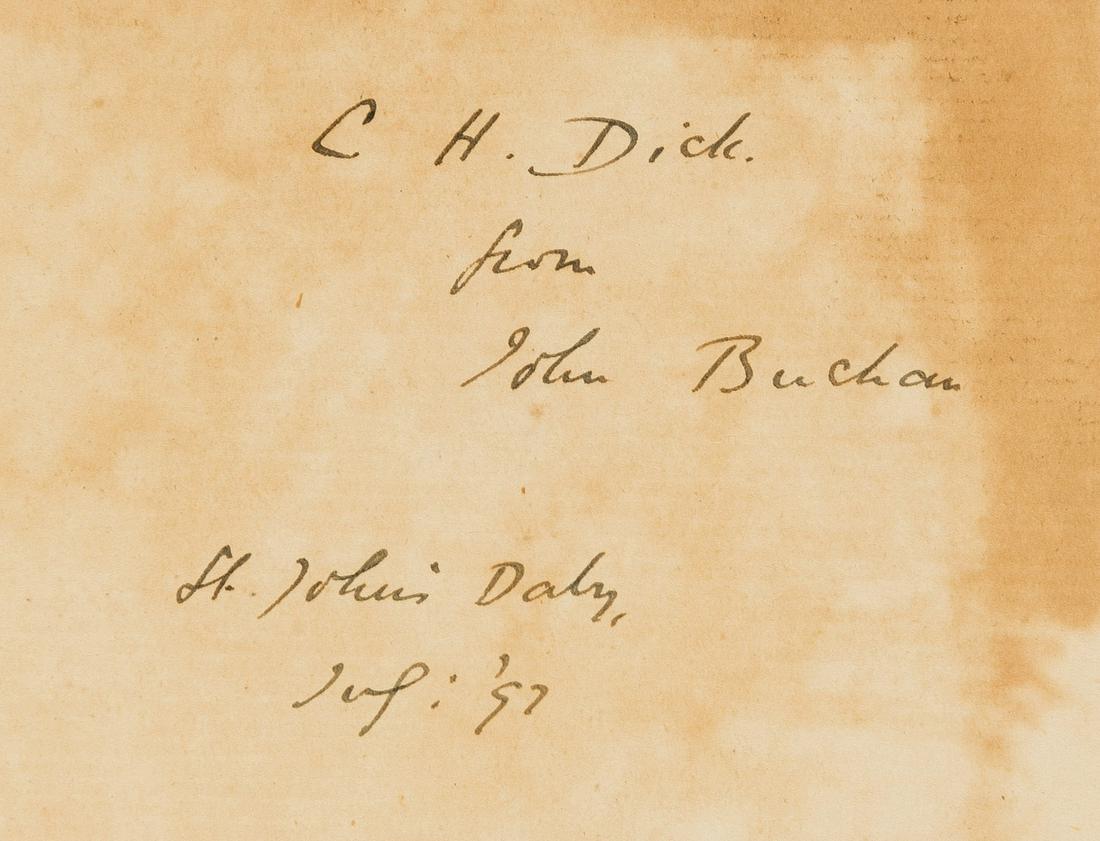 C H. Dick.
from
John Buchan
St. John's Dalry,
July : '97